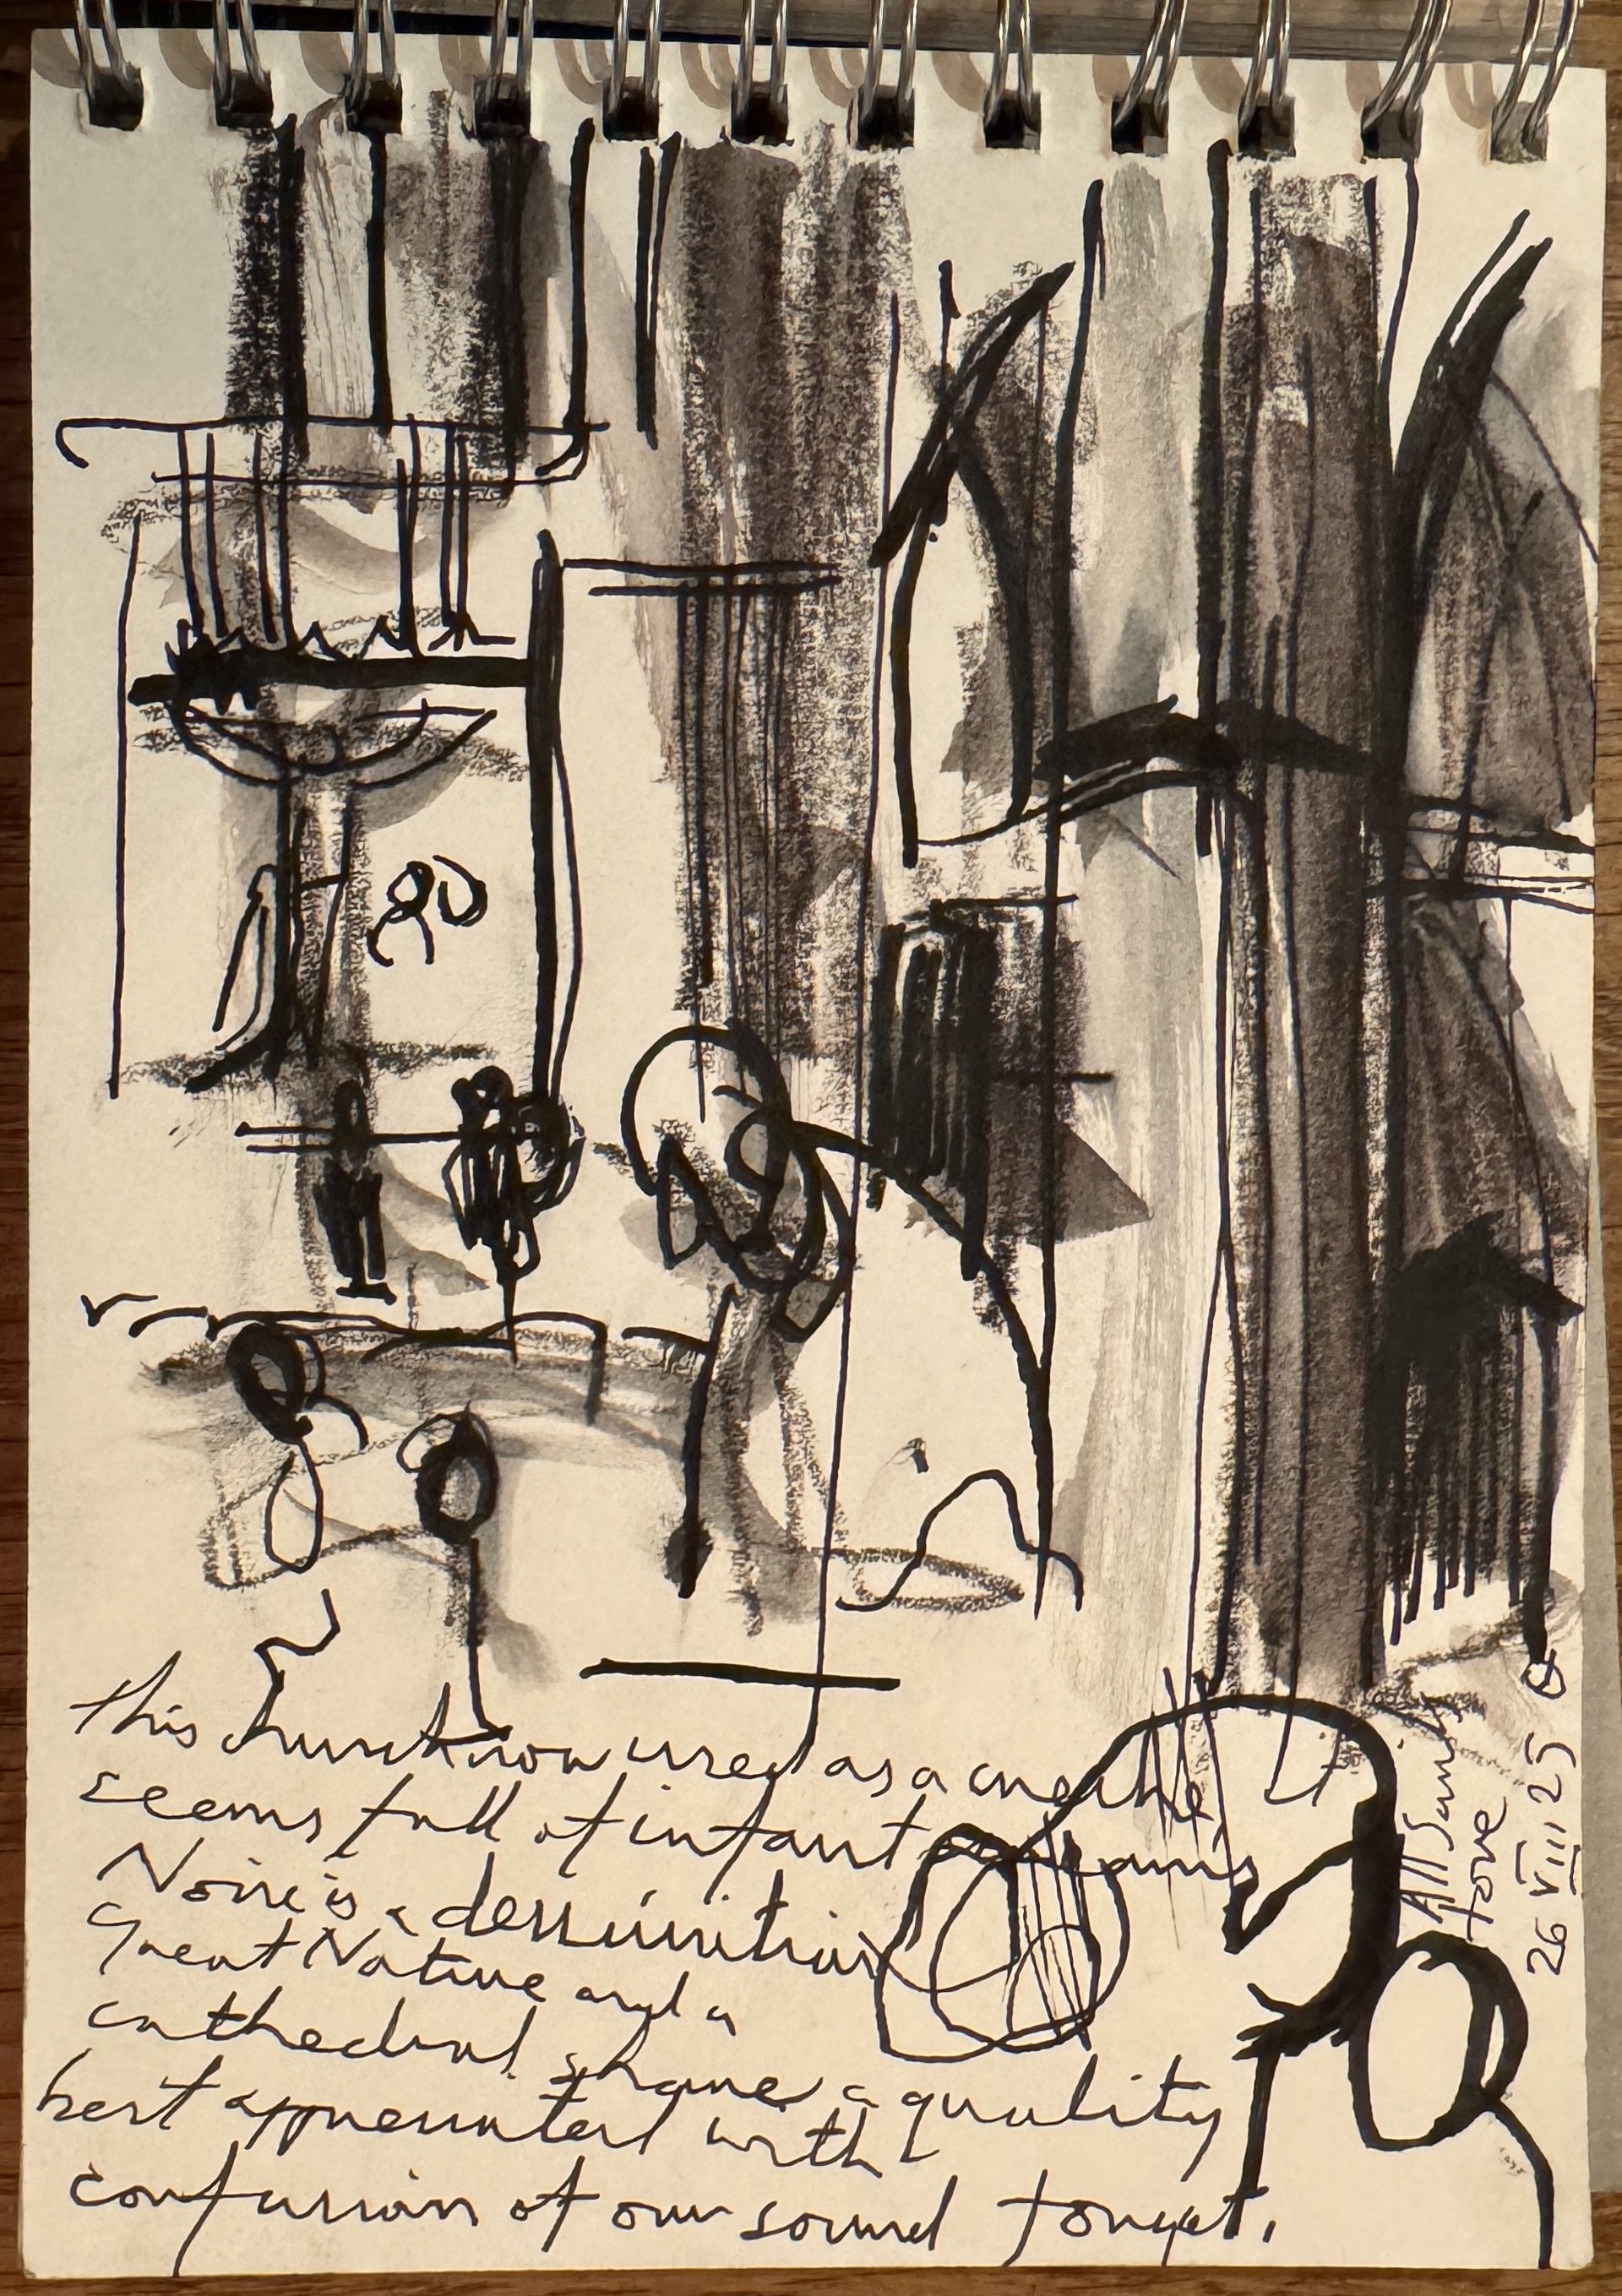 This church now used as a creche
seems full of infant screams
Noise is a
Great Nature and a
cathedral share a quality
best appreciated with
confusion of our sound forget.
All Saints
Hove
26 VIII 25